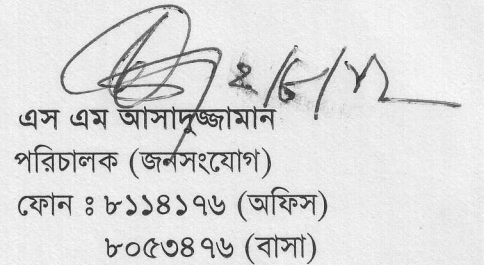 এস এম আসাদুজ্জামান
পরিচালক (জনসংযোগ)
ফোন ঃ ৮১১৪১৭৬ (অফিস)
৮০৫৩৪৭৬ (বাসা)